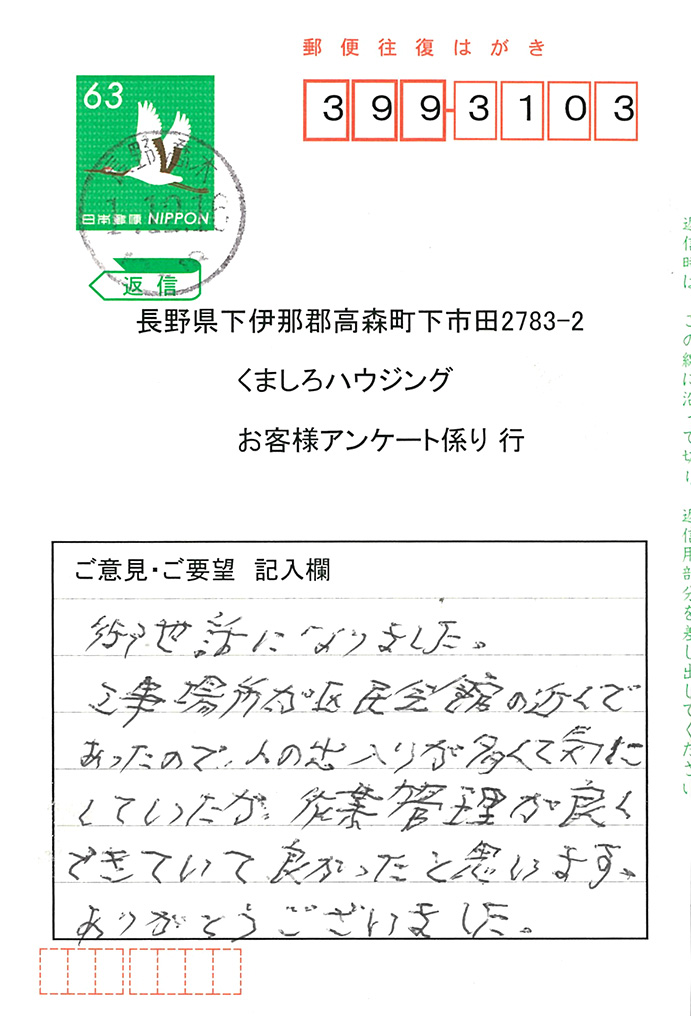 郵便往復はがき
63
399-3103
日本郵便 NIPPON
長野
返信
長野県下伊那郡高森町下市田2783-2
くましろハウジング
お客様アンケート係り 行
ご意見・ご要望 記入欄
御世話になりました。
工事場所が区民会館の近くで
あったので、人の出入りが多くて気に
していたが、作業管理が良く
できていて良かったと思います、
ありがとうございました。
返信時は、この線に沿って切り、返信用部分を差し出してください